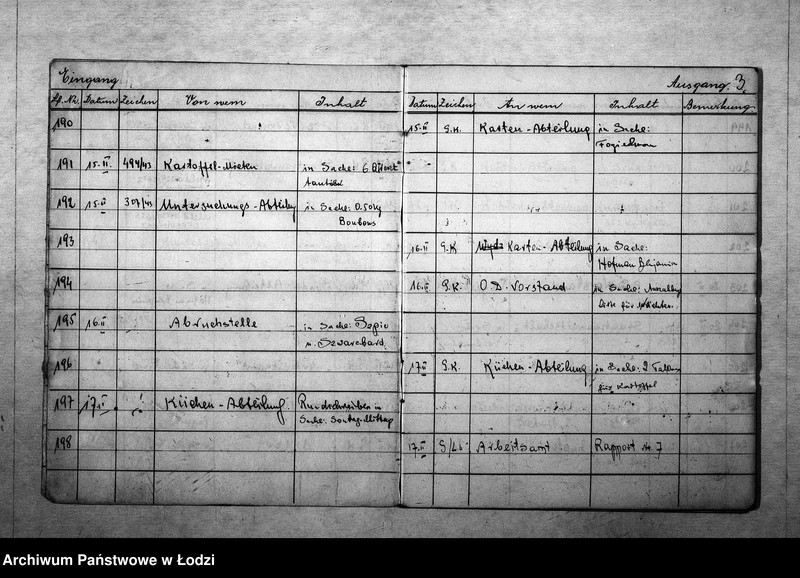 Eingang.
Ausgang. 3.
Lf. Nr. Datum Zeichen Von wem Inhalt Datum Zeichen An wem Inhalt Bemerkung
190 15.II G.K. Karten-Abteilung in Sache:
191 15.II. 494/43 Kartoffel-Mieten in Sache: 6
192 15.II 307/43 Untersuchungs-Abteilung in Sache: 0.50kg
Bonbons
193 16.II G.K Karten-Abteilung in Sache:
Hofman Benjamin
194 16.II G.K. O.D. Vorstand in Sache:
Liste für Wächter.
195 16.II Abruchstelle in Sache:
u. Szwarcbard.
196 17.II G.K. Küchen-Abteilung in Sache: 2
für Kartoffel
197 17.II Küchen-Abteilung. Rundschreiben in
Sache: Mittag
198 17.II Arbeitsamt Rapport Nr 7
Archiwum Państwowe w Łodzi